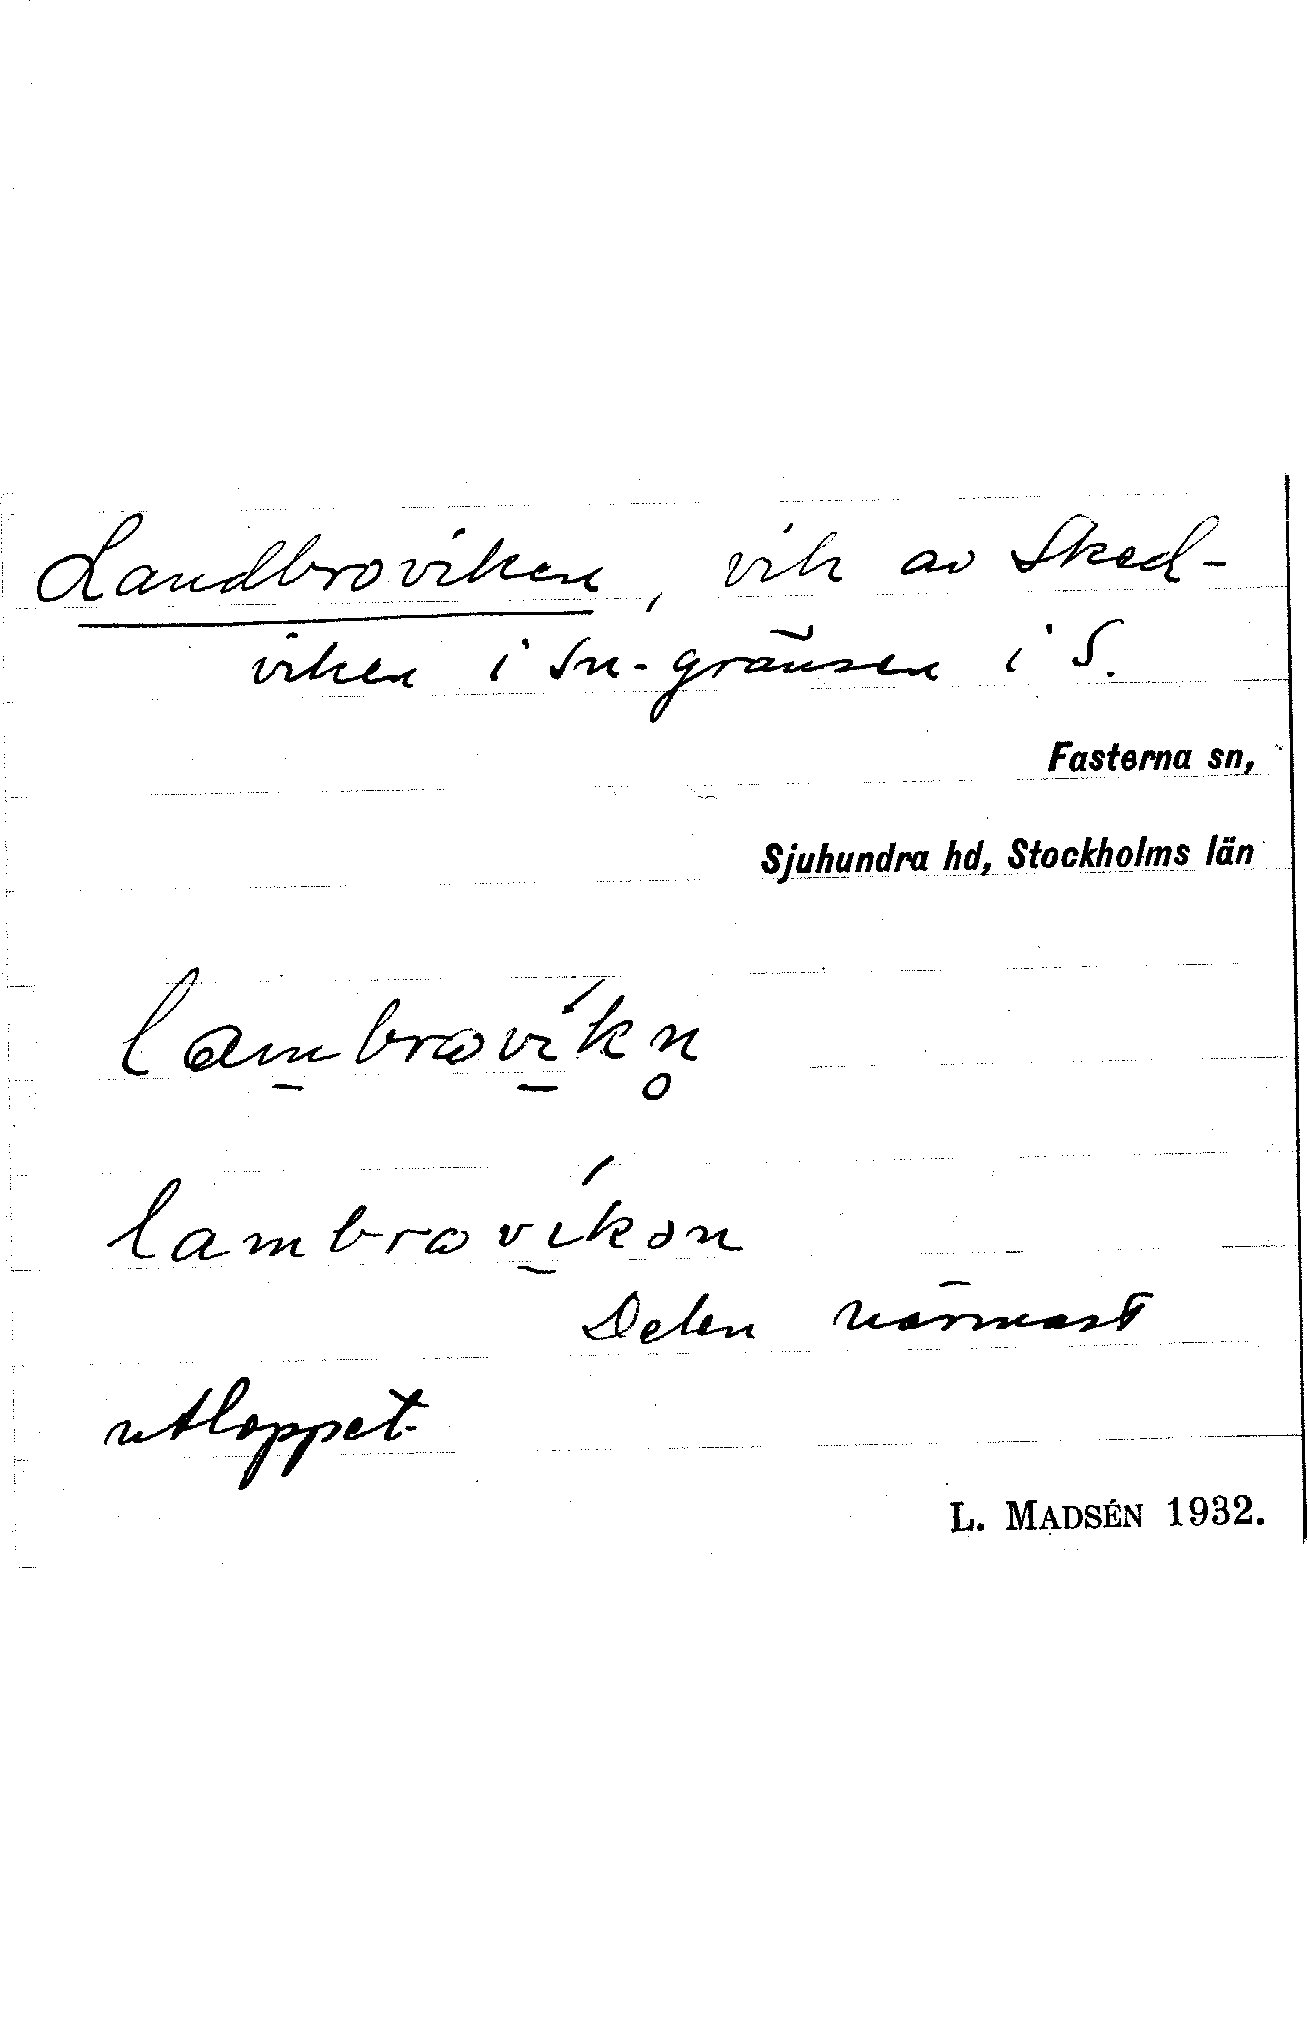 Landbroviken, vik av Sked-
viken i sn-gränsen i S.
Fasterna sn,
Sjuhundra hd, Stockholms län
lam̱brωví̱kn̥
lambrωví̱kən
Delen närmast
utloppet.
L. MADSÉN 1932.